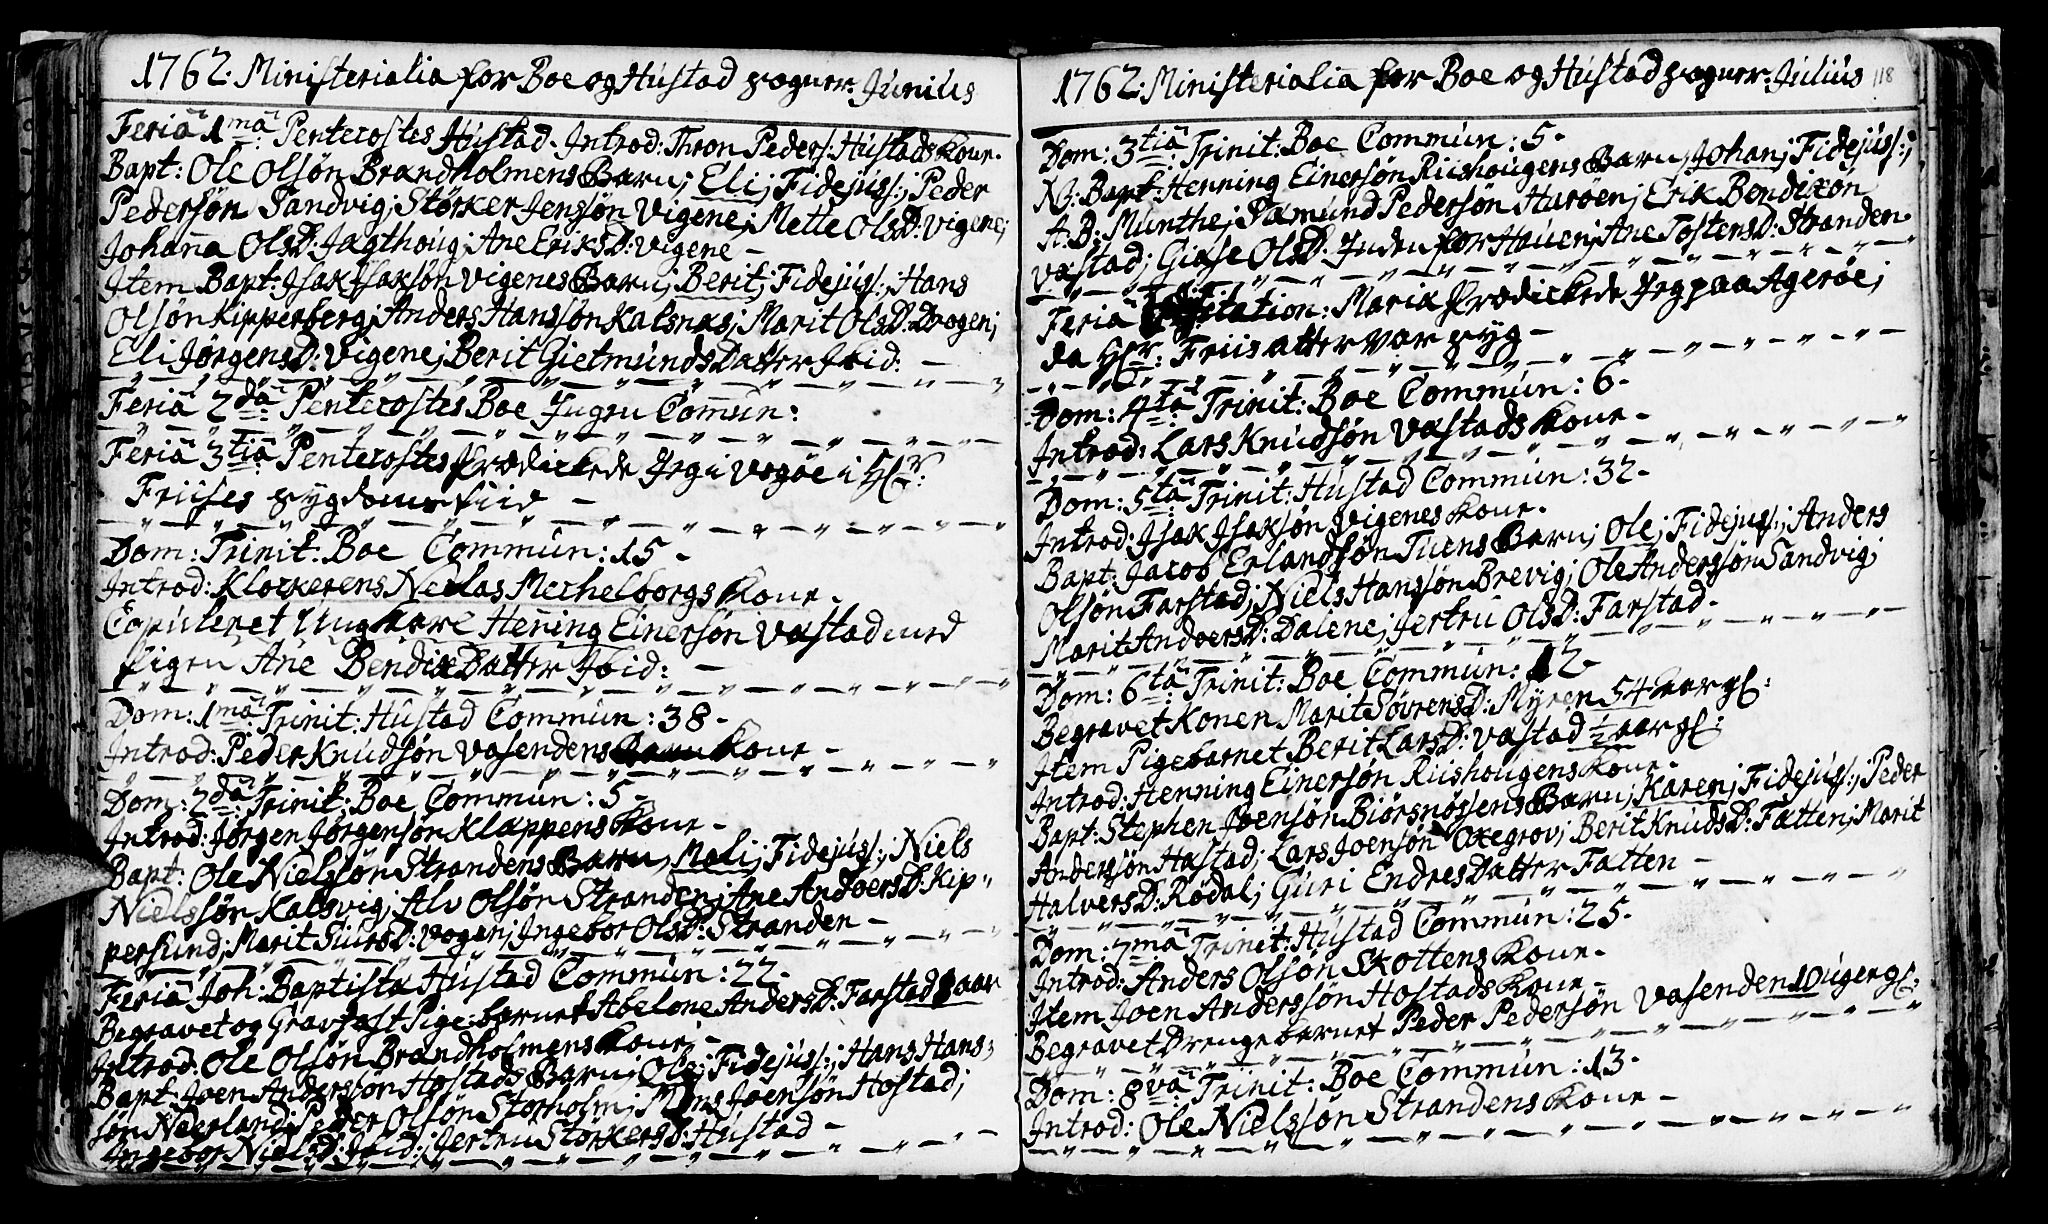 1762: Ministerialia for Boe og Hustad sogner: Junius
Feria 1ma Pentecostes Hustad. Introd: Thron Peders: Hustads Kone.
Bapt: Ole Olsön Brandholmens Barn; Eli; Fidejuss:; Peder
Pedersön Sandvig; Störker Jensön Vigene; Mette OlsD: Vigene;
Johana OlsD: Jagthoug; Ane EriksD: Vigene –
Item Bapt: Isak Isaksön Vigenes Barn; Berit; Fidejuss:; Hans
Olsön Kipperberg; Anders Hanssön Kalsnes; Marit OlsD: Drogen;
Eli JörgensD: Vigene; Berit Gietmunds Datter Ibid: –
Feria 2da Pentecostes Boe Ingen Comun:
Feria 3tia Pentecostes Prædickede Jeg i Vogöe i Hr:
Friises sygdoms tiid –
Dom: Trinit: Boe Commun: 15 –
Introd: Klockerens Neelas Mechelborgs Kone –
Copuleret Ungkarl Hening Einersön Vastad med
Pigen Ane Bendix Datter Ibid: –
Dom: 1ma Trinit: Hustad Commun: 38 –
Introd: Peder Knudsön Vasendens Kone –
Dom: 2da Trinit: Boe Commun: 5 –
Introd: Jörgen Jörgensön Klappens Kone –
Bapt: Ole Nielssön Strandens Barn; Mali; Fidejuss:; Niels
Nielssön Kalsvig; Alv Olsön Stranden; Ane AndversD: Kip"
persund; Marit SiursD: Vogen; Ingebor OlsD: Stranden –
Feria Joh: Baptista Hustad Commun: 22 –
Begravet og Gravfast Pige barnet Abelone AndersD: Farstad aar
Introd: Ole Olsön Brandholmens Kone; –
Bapt: Joen Anderssön Hostads Barn; Ole; Fidejuss:; Hans Hans:
sön Neerland; Peder Olssön Storholm; Mons Joensön Hostad;
Ingebor NielsD: Ibid:; Jertru StörkersD: Hustad –
1762: Ministerialia for Boe og Hustad sogner: Julius 118
Dom: 3tia Trinit: Boe Commun: 5 –
NB: Bapt: Henning Einersön Riishougens Barn; Johan; Fidejuss:;
A: B: Munthe; Sæmund Pedersön Huröen; Erik Bendixön
Vastad; Giase OlsD: Inden for Hauen; Ane TostensD: Stranden –
Feria Visitation: Mariæ Prædickede Jeg paa Ageröe;
da Hr: Friis atter var syg –
Dom: 4ta Trinit: Boe Commun: 6 –
Introd: Lars Knudsön Vastads Kone –
Dom: 5ta Trinit: Hustad Commun: 32 –
Introd: Isak Isaksön Vigenes Kone –
Bapt: Jacob Erlandsön Tuens Barn; Ole; Fidejuss:; Anders
Olsön Farstad; Niels Hanssön Brevig; Ole Anderssön Sandvig;
Marit AndversD: Dalene; Jertru OlsD: Farstad –
Dom: 6ta Trinit: Boe Commun: 12 –
Begravet Konen Marit SövrensD: Myren 54 aar gl:
Item Pigebarnet Berit LarsD: Vastad ½ aar gl:
Introd: Henning Einersön Riishougens Kone –
Bapt: Stephen Joensön Biörsnösens Barn; Karen; Fidejuss:; Peder
Andersön Hastad; Lars Joensön Oxegrov; Berit KnudsD: Fatten; Marit
HalversD: Rödal; Guri Endres Datter Fatten –
Dom: 7ma Trinit: Hustad Commun: 25 –
Introd: Anders Olsön Skottens Kone –
Item Joen Anderssön Hostads Kone –
Begravet Drenge barnet Peder Pedersön Vasenden 10 uger gl:
Dom: 8va Trinit: Boe Commun: 13 –
Introd: Ole Nielssön Strandens Kone –